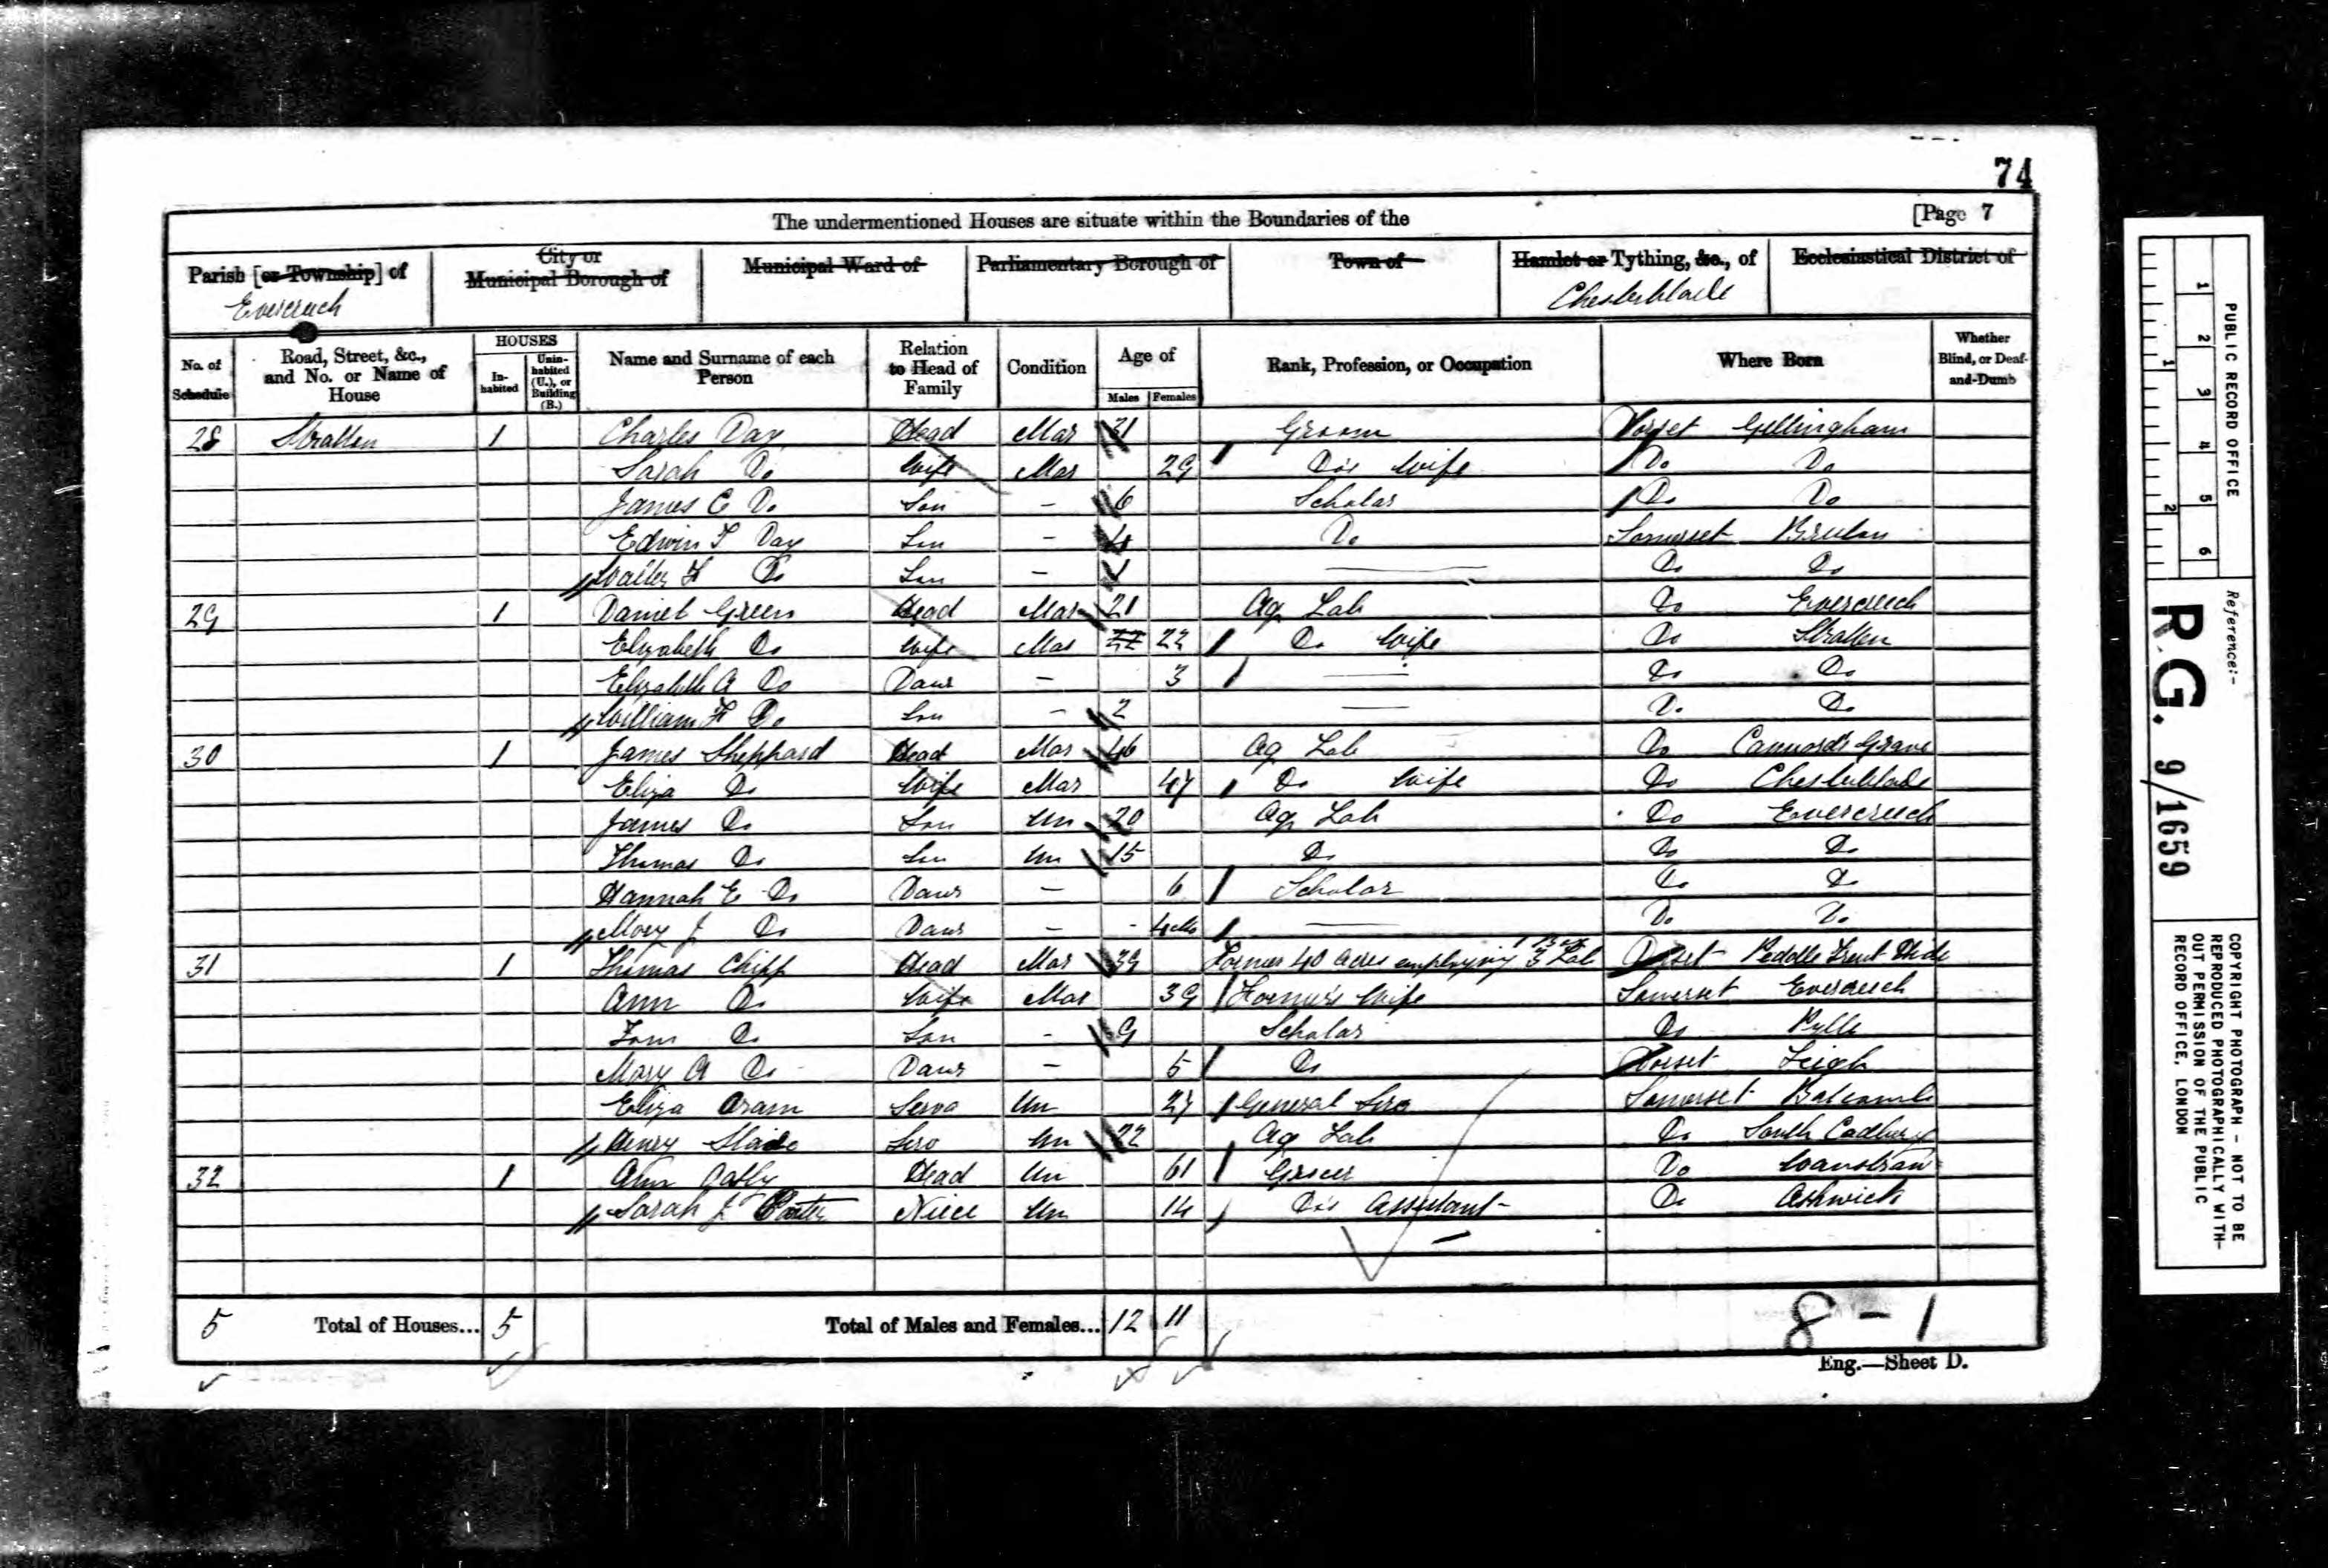 74
The undermentioned Houses are situate within the Boundaries of the [Page 7
Parish [or Township] of Evercreech
City or Municipal Borough of
Municipal Ward of
Parliamentary Borough of
Town of
Hamlet or Tything, &c., of Chesterblade
Ecclesiastical District of
No. of Schedule
Road, Street, &c., and No. or Name of House
HOUSES
In-habited
Unin-habited (U.), or Building (B.)
Name and Surname of each Person
Relation to Head of Family
Condition
Age of
Males Females
Rank, Profession, or Occupation
Where Born
Whether Blind, or Deaf-and-Dumb
28 Stratton 1 Charles Day Head Mar 31 Groom Dorset Gillingham
Sarah Do Wife Mar 29 Do's Wife Do Do
James C Do Son - 6 Scholar Do Do
Edwin T Day Son - 4 Do Somerset Bruton
Walter H Do Son - 1 Do Do
29 1 Daniel Green Head Mar 21 Ag Lab Do Evercreech
Elizabeth Do Wife Mar 22 22 Do Wife Do Stratton
Elizabeth A Do Daur - 3 Do Do
William F Do Son - 2 Do Do
30 1 James Sheppard Head Mar 46 Ag Lab Do Cannard's Grave
Eliza Do Wife Mar 47 Do Wife Do Chesterblade
James Do Son Un 20 Ag Lab Do Evercreech
Thomas Do Son Un 15 Do Do Do
Hannah E Do Daur - 6 Scholar Do Do
Mary J Do Daur - 4 Mo Do Do
31 1 Thomas Chipp Head Mar 39 Farmer 40 Acres employing 3 Lab 1 Boy Dorset Peddle Trent Hide
Ann Do Wife Mar 39 Farmer's Wife Somerset Evercreech
Tom Do Son - 9 Scholar Do Pylle
Mary A Do Daur - 5 Do Dorset Leigh
Eliza Oram Serva Un 27 General Serv Somerset Batcombe
Henry Slade Serv Un 22 Ag Lab Do South Cadbury
32 1 Ann Head Un 61 Grocer Do Wanstraw
Sarah J Niece Un 14 Do's Assistant Do Ashwick
5 Total of Houses... 5 Total of Males and Females... 12 11
8 - 1
Eng.—Sheet D.
PUBLIC RECORD OFFICE
1 2 3 4 5 6
1 2
Reference:-
RG. 9/1659
COPYRIGHT PHOTOGRAPH - NOT TO BE
REPRODUCED PHOTOGRAPHICALLY WITH-
OUT PERMISSION OF THE PUBLIC
RECORD OFFICE, LONDON